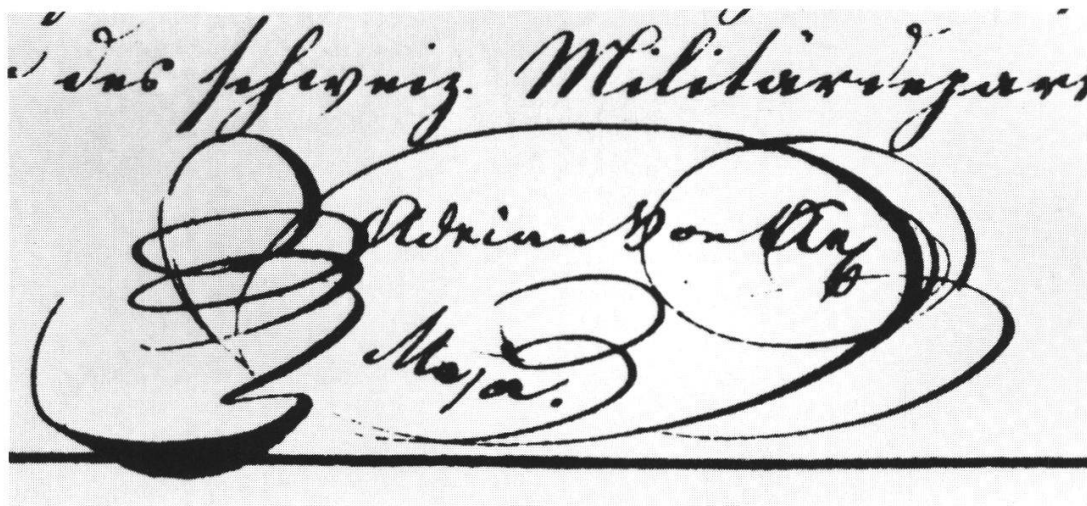 des schweiz. Militärdepar
Adrian von
Major.